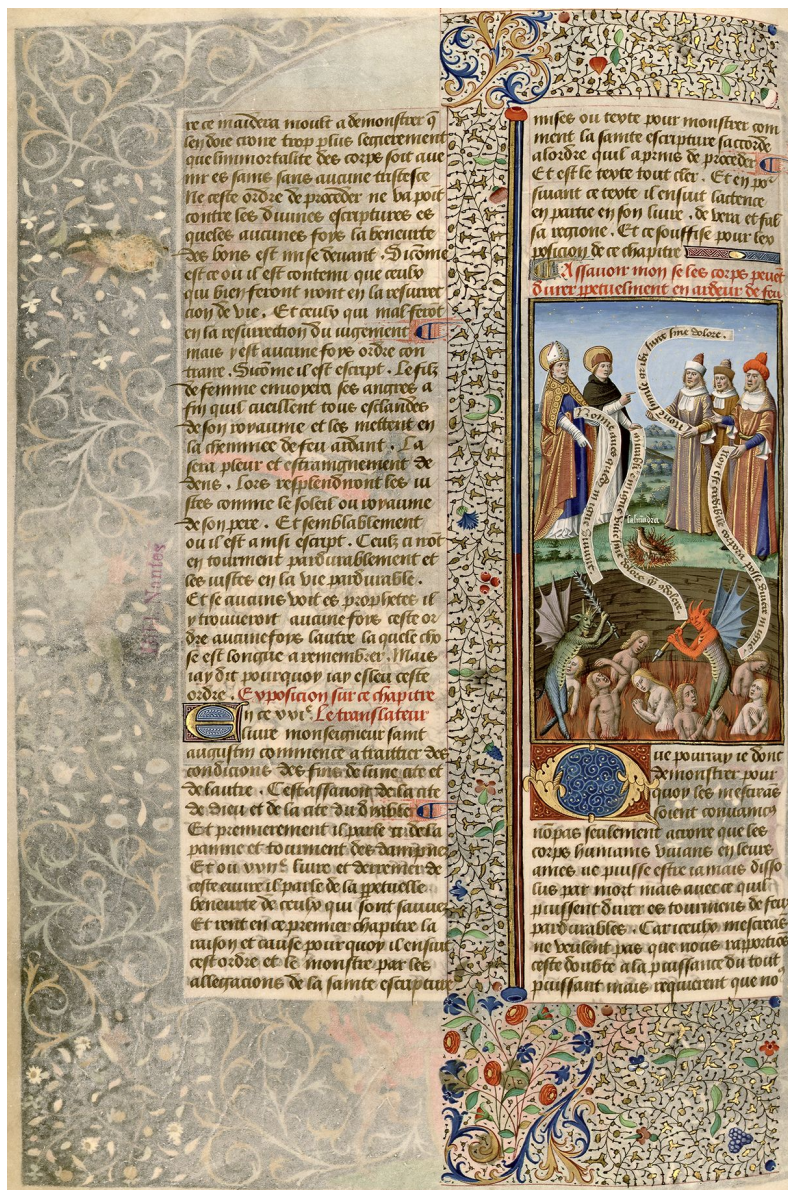 re ce maidera moult a demonstrer q
len doie croire trop plus legierement
que limmortalite des corps soit aue
nir es sains sans aucune tristesce
Ne ceste ordre de proceder ne va poit
contre les divines escriptures es
queles aucunes foys la beneurte
des bons est mise devant . Sicome
est ce ou il est contenu que ceulx
qui bien feront iront en la resurrec
cion de vie . Et ceulx qui mal ferot
en la resurrection du iugement
mais y est aucune foys ordre con
traire . Sicome il est escript . Le filz
de femme envoyera ses angres a
fin quil cueillent tous esclandes
de son royaume et les mettent en
la cheminee de feu ardant . La
sera pleur et estraingnement de
dens . Lors resplendiront les iu
stes comme le soleil ou royaume
de son pere . Et semblablement
ou il est ainsi escript . Ceulx ci irot
en tourment pardurablement et
les iustes en la vie pardurable .
Et se aucuns voit es prophetes il
y trouveront aucune foys ceste or
dre aucunefoys lautre la quele cho
se est longue a remembrer . Mais
iay dit pourquoy iay esleu ceste
ordre . Exposicion sur ce chapitre
En ce xxi.e Le translateur
livre monseigneur saint
augustin commence a traittier des
condicions des fins de lune cite et
de lautre . Cest assavoir de la cite
de dieu et de la cite du diable
Et premierement il parle ci de la
painne et tourment des dampne
Et ou livre et derrenier de
ceste euvre il parle de la ppetuelle
beneurte de ceulx qui sont sauve
Et rent en ce premier chapitre la
raison et cause pour quoy il ensuit
cest ordre et le monstre par les
allegacions de la sainte escripture
mises ou texte pour monstrer com
ment la sainte escripture saccorde
a lordre quil a prins de proceder
Et est le texte tout cler . Et en po
suiant ce texte il ensuit lactence
en partie en son livre . de vera et fal
sa regione . Et ce souffise pour lex
posicion de ce chapitre
Assavoir mon se les corps peuet
durer ppetuelment en ardeur de feu
sine dolore .
salmandra
Que pourray ie dont
demonstrer pour
quoy les mescreas
soient convaincus
no pas seulement a croire que les
corps humains vivans en leurs
ames ne puisse estre iamais disso
lus par mort mais avec ce quil
puissent durer es tourmens de feu
pardurables . Car iceulx mescreas
ne veulent pas que nous rapportios
ceste doubte a la puissance du tout
puissant mais requierent que no
Nantes